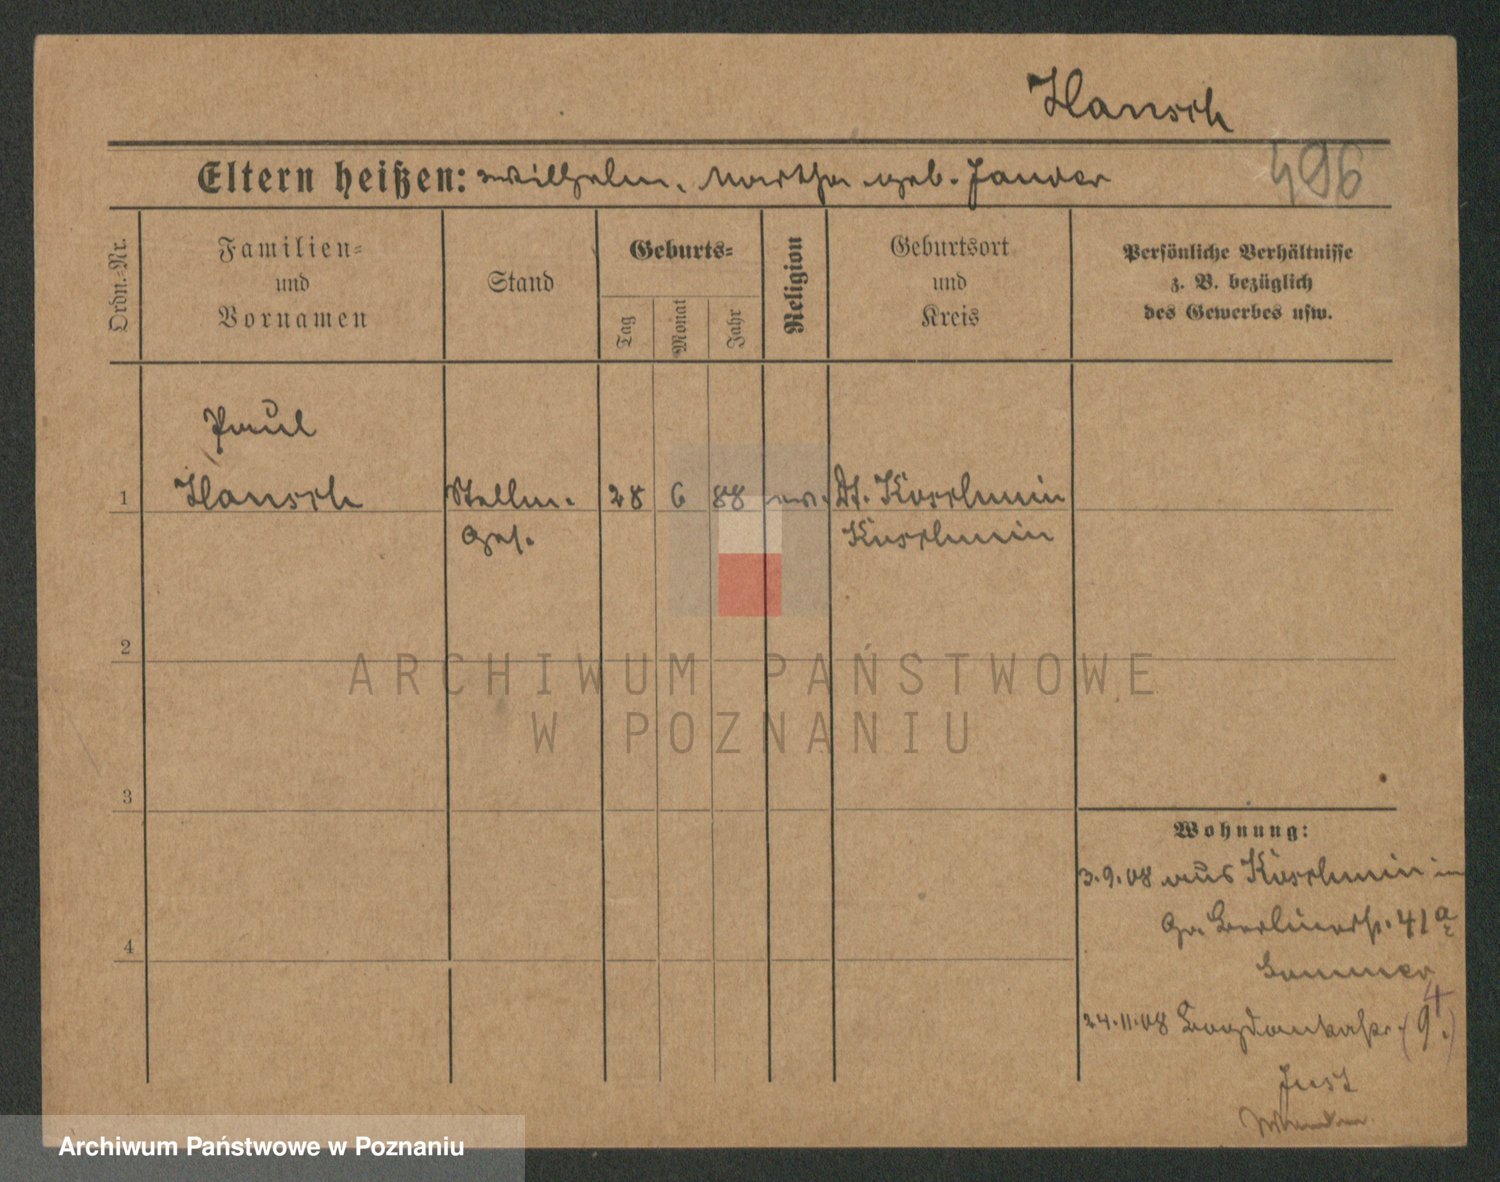 Hansch
496
Eltern heißen: Wilhelm, Martha geb. Jander
Ordn.-Nr.
Familien- und Vornamen
Stand
Geburts-
Tag
Monat
Jahr
Religion
Geburtsort und Kreis
Persönliche Verhältnisse
z. B. bezüglich
des Gewerbes usw.
Paul
1 Hansch Stellm. 28 6 88 ev. Dt. Koschmin
Ges. Koschmin
2
3
4
Wohnung:
3.9.08 aus Koschmin in
Gr. Berlinerstr. 41a
Sommer
24.11.08 Bogdankastr. (9.)
4
Just
ARCHIWUM PAŃSTWOWE
W POZNANIU
Archiwum Państwowe w Poznaniu